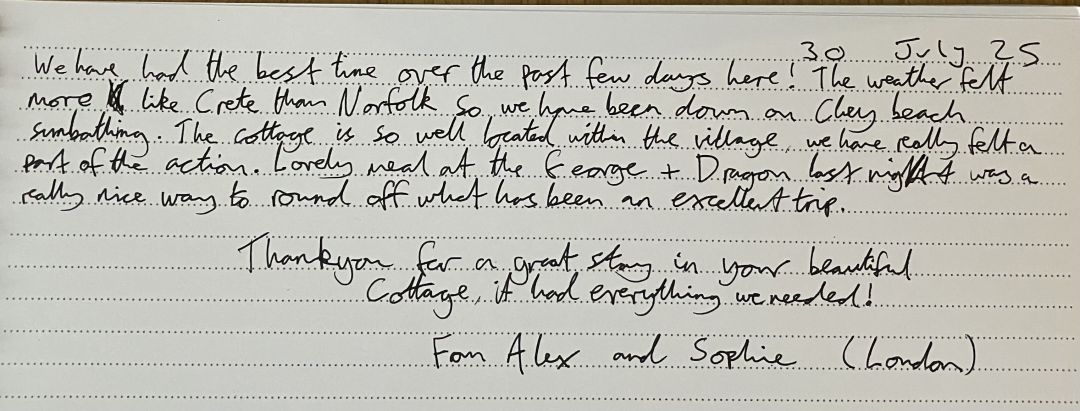 30 July 25
We have had the best time over the past few days here! The weather felt
more like Crete than Norfolk so we have been down on Cley beach
sunbathing. The cottage is so well located within the village, we have really felt a
part of the action. Lovely meal at the George + Dragon last night was a
really nice way to round off what has been an excellent trip.
Thankyou for a great stay in your beautiful
Cottage, it had everything we needed!
From Alex and Sophie (London)